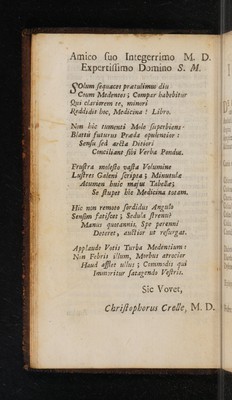 Amico suo Integerrimo M. D.
Expertissimo Domino S. M.
SOlum sequaces prætulimus diu
Coum Medentes; Compar habebitur
Qui clariorem te, minori
Reddidit hoc, Medicina! Libro.
Non hic tumenti Mole superbiens
Blattis futurus Præda opulentior:
Sensu sed arcta Ditiori
Conciliant sibi Verba Pondus.
Frustra molesto vasta Volumine
Lustres Galeni scripta; Minutulæ
Acumen huic majus Tabellæ;
Se stupet hic Medicina totam.
Hic non remoto sordidus Angulo
Sensim fatiscet; Sedula strenuo
Manus quotannis, Spe perenni
Deteret, auctior ut resurgat.
Applaude Votis Turba Medentium:
Non Febris illum, Morbus atrocior
Haud afflet ullus; Commodis qui
Immoritur satagendo Vestris.
Sic Vovet,
Christophorus Crelle, M. D.